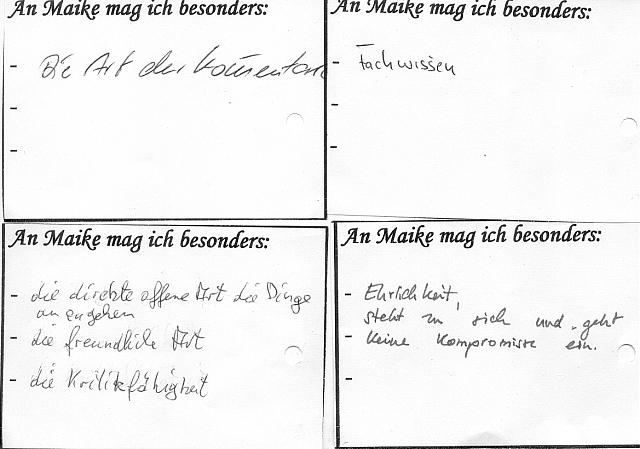 An Maike mag ich besonders:
- Die Art der Komentare
-
-
An Maike mag ich besonders:
- Fachwissen
-
-
An Maike mag ich besonders:
- die direkte offene Art die Dinge
anzugehen
- die freundliche Art
- die Kritikfähigkeit
An Maike mag ich besonders:
- Ehrlichkeit,
steht zu sich und geht
- keine Kompromisse ein.
-